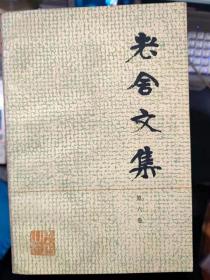 老舍文集
第 卷